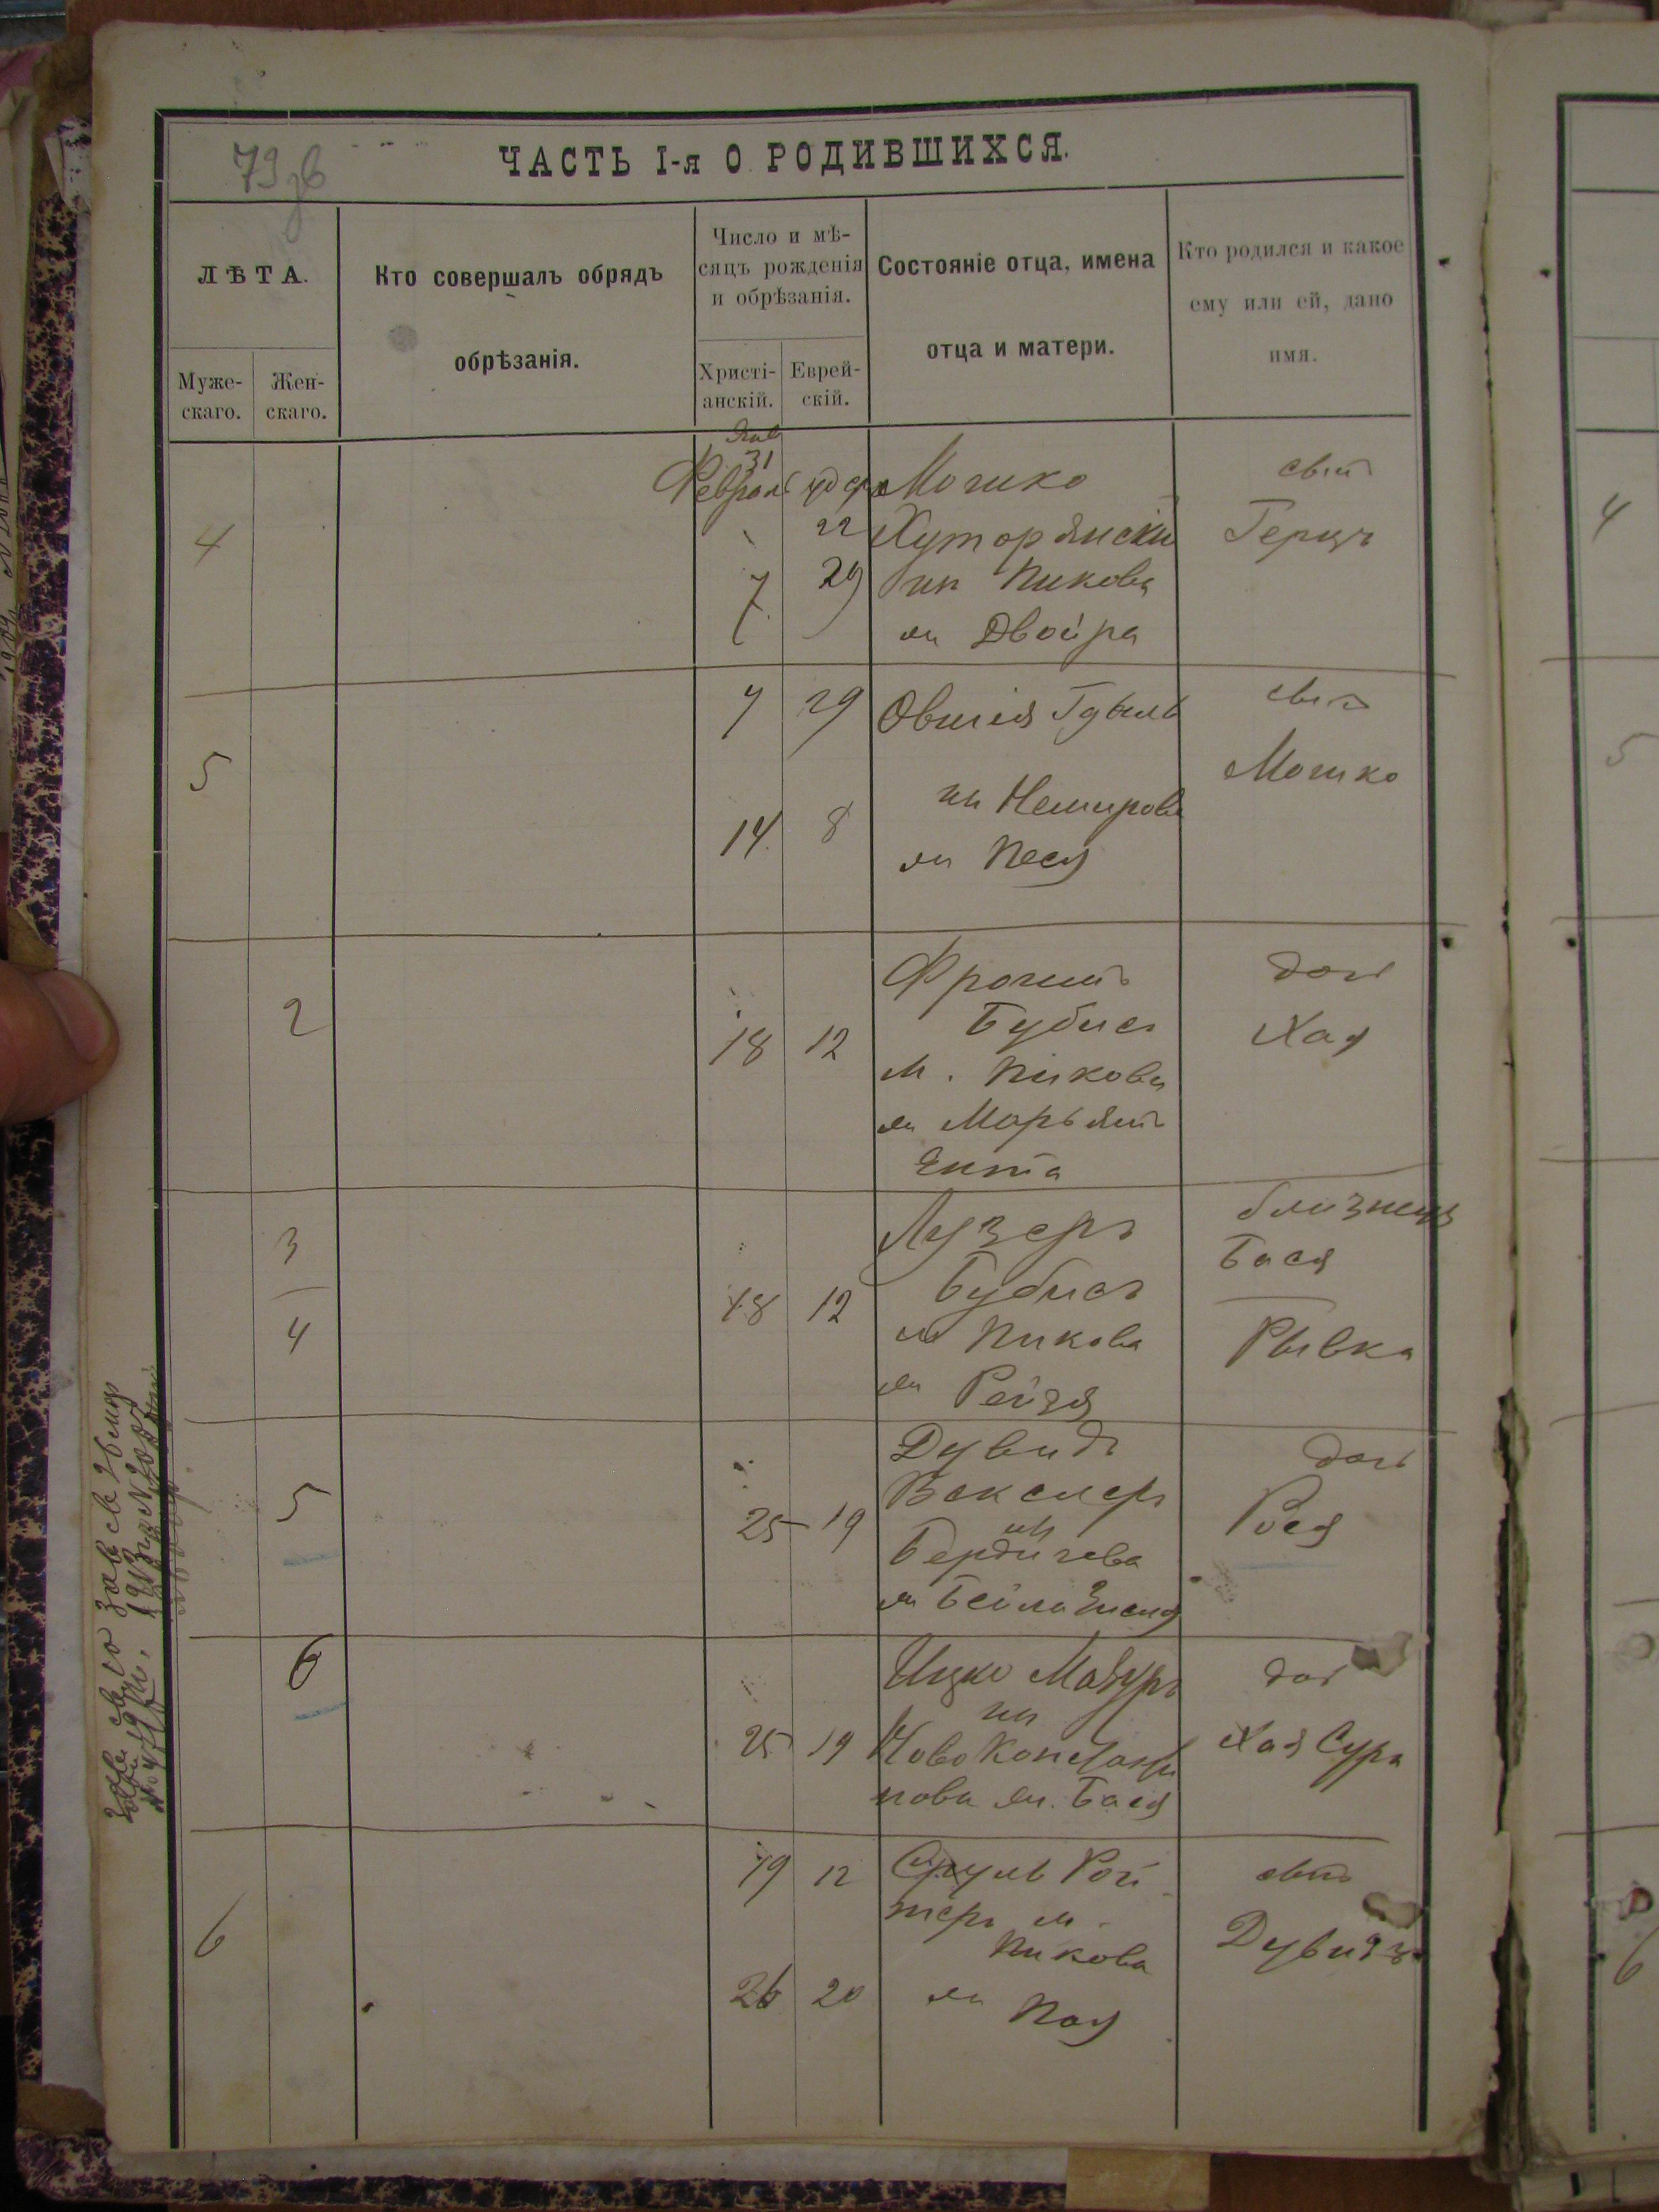 79 зв
ЧАСТЬ I-я О РОДИВШИХСЯ.
ЛѢТА.
Муже-
скаго.
Жен-
скаго.
Кто совершалъ обрядъ
обрѣзанія.
Число и мѣ-
сяцъ рожденія
и обрѣзанія.
Христі-
анскій.
Еврей-
скій.
Состояніе отца, имена
отца и матери.
Кто родился и какое
ему или ей, дано
имя.
4
Янв
31
Февраль
22
7 29
Мошко
Хуторянскі
Пикова
м Двойра
сынъ
Герцъ
5
7 29
14 8
Овшія
из Немирова
м Песя
сынъ
Мошко
2
18 12
Фроимъ
Бубисъ
м. Пикова
м Марьямъ
Ента
дочь
Хая
3
4
18 12
Лузеръ
Бубисъ
м Пикова
м Рейзя
близнецы
Бася
Рывка
5
25 19
Дувидъ
Векслеръ
из
Бердичева
м Бейла
дочь
Рося
6
25 19
Ицко Мазуръ
из
Ново Константи
нова м. Бася
дочь
Хая Сура
6
19 12
26 20
Сруль Рой
теръ м.
Пикова
м Пая
сынъ
Дувидъ